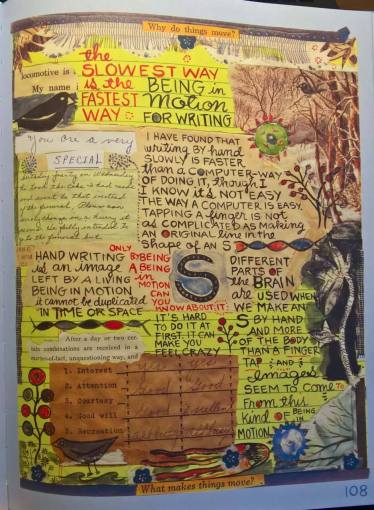 Why do things move?
the
SLOWEST WAY
is the BEING in
FASTEST Motion
WAY FOR WRITING.
locomotive is
My name
You are a very
SPECIAL
I HAVE FOUND THAT
writing BY hand
SLOWLY IS FASTER
than a COMPUTER-WAY
OF DOING IT, though I
I KNOW it's NOT EASY
THE WAY A COMPUTER IS EASY.
TAPPING A finger is NOT
as COMPLICATED AS MAKING
AN ORIGINAL line IN THE
Shape of AN S
HAND WRITING
is an image
LEFT BY A LIVING
BEING IN MOTION
it cannot be duplicated
IN TIME OR SPACE
ONLY
BY BEING
A BEING
in
MOTION
CAN
YOU
KNOW ABOUT IT:
S
IT'S HARD
TO DO IT AT
FIRST. IT CAN
MAKE YOU
FEEL CRAZY
DIFFERENT
PARTS OF
the BRAIN
are USED WHEN
WE MAKE AN
S BY HAND
AND MORE
OF THE BODY
THAN A FINGER
TAP AND
Images
SEEM TO COME TO
FROM this
KIND OF BEING
IN
MOTION
After a day or two cer-
bits combinations are received in a
matter-of-fact, unquestioning way, and
1. Interest
2. Attention Good
3. Courtesy
4. Good will
5. Recreation
What makes things move?
108